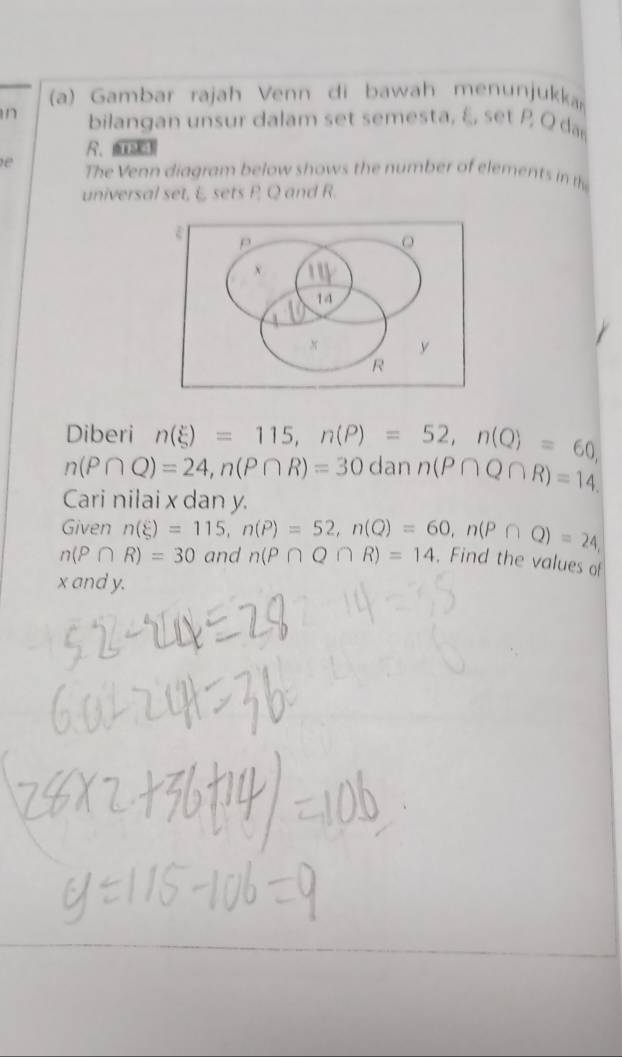 n
(a) Gambar rajah Venn di bawah menunjukkan
bilangan unsur dalam set semesta, ξ, set P, Q dan
R. TP 4
e
The Venn diagram below shows the number of elements in the
universal set, ξ, sets P, Q and R.
ξ
P
Q
x
14
x
y
R
Diberi n(ξ) = 115, n(P) = 52, n(Q) = 60,
n(P ∩ Q) = 24, n(P ∩ R) = 30 dan n(P ∩ Q ∩ R) = 14.
Cari nilai x dan y.
Given n(ξ) = 115, n(P) = 52, n(Q) = 60, n(P ∩ Q) = 24,
n(P ∩ R) = 30 and n(P ∩ Q ∩ R) = 14. Find the values of
x and y.
52-24=28
60-24=36
(28×2+36+14)=106
y=115-106=9